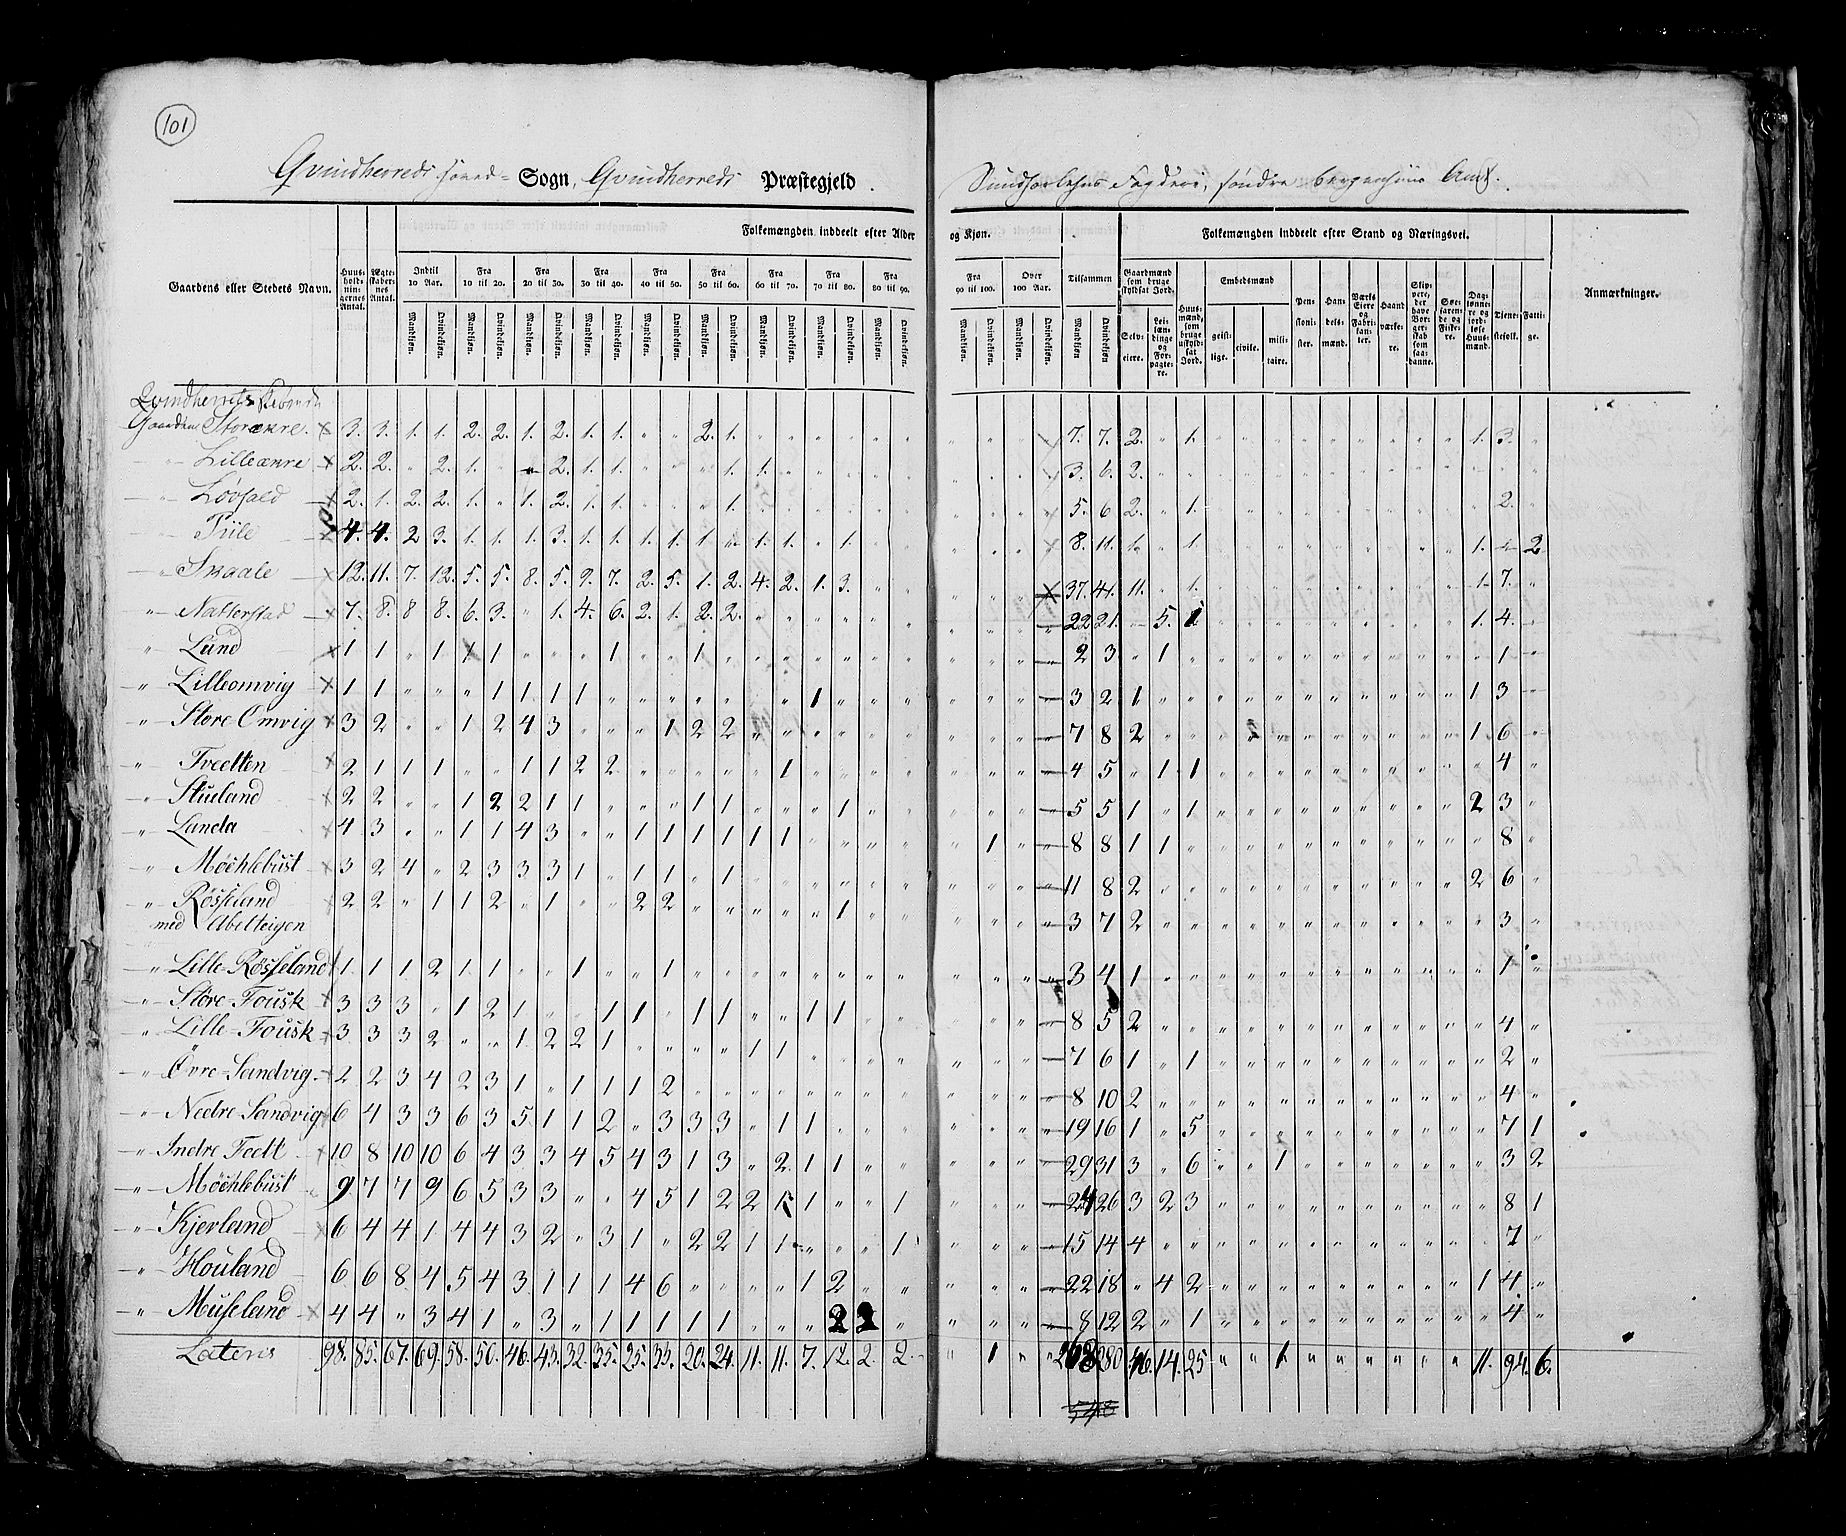 101
Qvindherreds Hoved= Sogn, Qvindherreds Præstegjeld.
Søndre Bergenhuus Amt.
Folkemængden inddeelt efter Alder og Kjøn.
Folkemængden inddeelt efter Stand og Næringsvei.
Gaardens eller Stedets Navn.
Huus-holdnin-gernes Antal.
Ægte-skaber-nes Antal.
Indtil 10 Aar.
Fra 10 til 20.
Fra 20 til 30.
Fra 30 til 40.
Fra 40 til 50.
Fra 50 til 60.
Fra 60 til 70.
Fra 70 til 80.
Fra 80 til 90.
Fra 90 til 100.
Over 100 Aar.
Tilsammen
Mandkjøn. Qvindekjøn.
Gaardmænd som bruge skyldsat Jord.
Selv-eiere.
Lei-læn-dinge og For-pagte-re.
Huus-mænd, som bruge uskyld-sat Jord.
Embedsmænd
geist-lige. civile. mili-taire.
Pen-sioni-ster.
Han-dels-mænd.
Værks Eiere og Fabri-kan-ter.
Haand-værke-re.
Dag-lønne-re og jord-løse Huus-mænd.
Tjene-stefolk.
Fatti-ge.
Anmærkninger.
Gaarden Storækre 3. 3. 1. 1. 2. 2. 1. 2. 1. 1. " " 2. 1. 7. 7. 2. " 1. 1. 3.
Lilleækre 2. 2. " 2. 1. " " 2. 1. 1. 1. 1. 3. 6. 2.
2. 1. 2. 2. 1. " 1. 2. 1. 1. 1. 5. 6 2. " 1. 2.
Tiile 4. 4. 2 3. 1. 1. 1. 3. 1. 1. 1. 1. 1. " 1. 1. " 1. 8. 11. 1. " 1. 1. 2
Skaale 12. 11. 7. 12. 5. 5. 8. 5. 9. 7. 2. 5. 1. 2. 4. 2. 1. 3. 37. 41. 11. " 1. 1. 7.
Natterstad 7. 8. 8 8. 6. 3. " 1. 4. 6. 2. 1. 2. 2. 22 21. 5. 1 1. 4.
Lund 1 1 " 1 1 1 " " " 1 " " 1 2 3 " 1 1
Lilleomvig 1 1 " " " 1 1 1 1 1 3 2 1 1 3
Store Omvig 3 2 " " 1 2 4 3 " " " 1 2 2 7 8 2 1 6
Treetten 2 1 1 1 " " 1 1 2 2 1 4 5 " 1 1 4
Stueland 2 2 " " 1 2 2 1 1 " " " 1 1 1 5 5 1 " 1 2 3
Landa 4 3 " " 1 1 4 3 " " 1 1 1 1 1 1 1 8 8 1 1 8
Møehlebust 3 2 4 " 2 3 3 3 1 " 1 1 " 1 11 8 2 2 6
Røsseland 2 2 " 1 1 2 " 1 " " 2 2 1 3 7 2 3
med Abelteigen
Lille-Røsseland 1 1 1 2 1 1 " " 1 " " 1 3 4 1 1
Store-Fousk 3 3 3 " 1 2 1 " " 1 1 " 1 1 " " 1 1 8 5 2 4
Lille-Fousk 3 3 3 2 " " 1 2 2 1 1 1 7 6 1 " 1 2
Øvre-Sandvig 2 2 3 4 2 3 1 " 1 1 1 2 8 10 2 4
Nedre-Sandvig 6 4 3 3 6 3 5 1 1 2 " 3 3 3 " 1 1 19 16 1 " 5 7 1
Indre Foelt 10 8 10 10 6 4 3 3 4 5 4 3 1 3 " 2 1 1 29 31 3 " 6 " " 1 3 2
Møehlebust 9 7 7 9 6 5 3 3 " " 4 5 1 2 2 1 1 " " 1 24 26 3 2 3 8 1
Kjerland 6 4 4 1 4 4 3 2 " 3 1 " 2 2 1 1 " " " 1 15 14 4 7
Houland 6 6 8 4 5 4 3 1 1 1 4 6 " " " " 1 2 22 18 " 4 2 1 4
Museland 4 4 " 3 4 1 " 3 " 1 1 1 1 1 " " " 2 2 " 8 12 2 " 1 4
Lateris 98. 85. 67. 69. 58. 50. 46. 43. 32. 35. 25. 33. 20. 24. 11. 11. 7. 12. 2. 2. " 1 " " 268 280 46. 14. 25 " " 1 11. 94. 6.
548